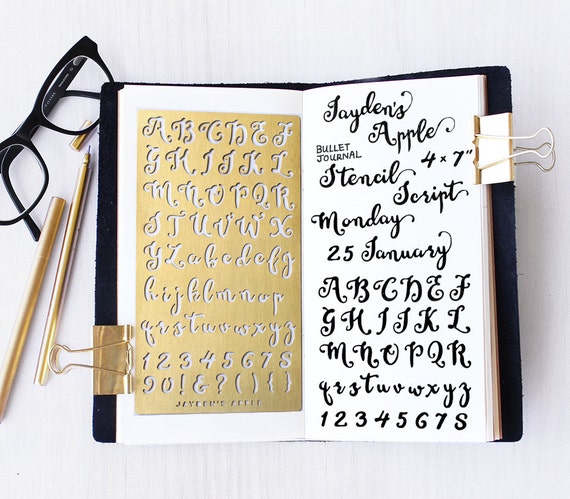 ABCDEF
GHIJKL
MNOPQR
STUVWX
YZabcdefg
hijklmnop
qrstuvwxyz
12345678
90!&?(){}
JAYDEN'S APPLE
Jayden's
Apple
BULLET
JOURNAL
4 × 7"
Stencil
Script
Monday
25 January
ABCDEF
GHIJKL
MNOPQR
qrstuvwxyz
12345678